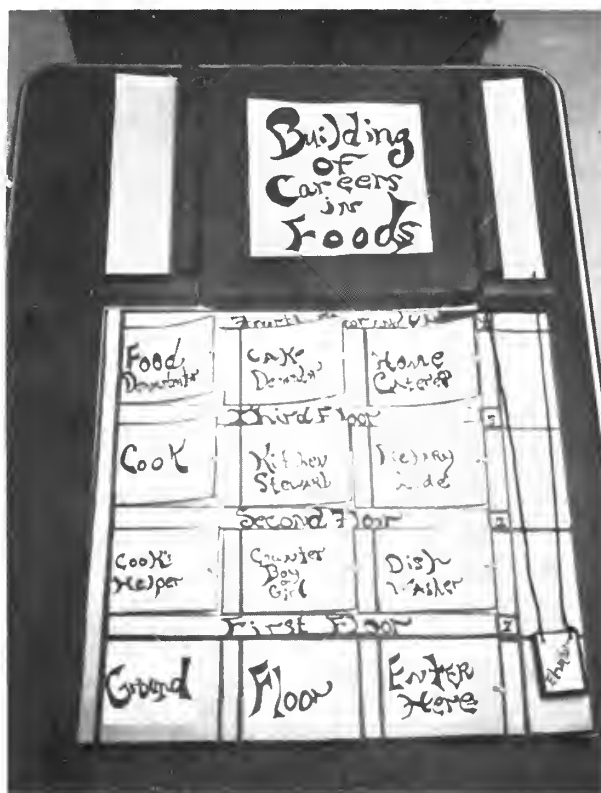 Building
of
Careers
in
Foods
Fourth
Food
Cake
Home
Caterer
Third Floor
3
Cook
Kitchen
Steward
Dietary
Second Floor
2
Cook's
Helper
Counter
Boy
Girl
Dish
Washer
First Floor
Ground
Floor
Enter
Here